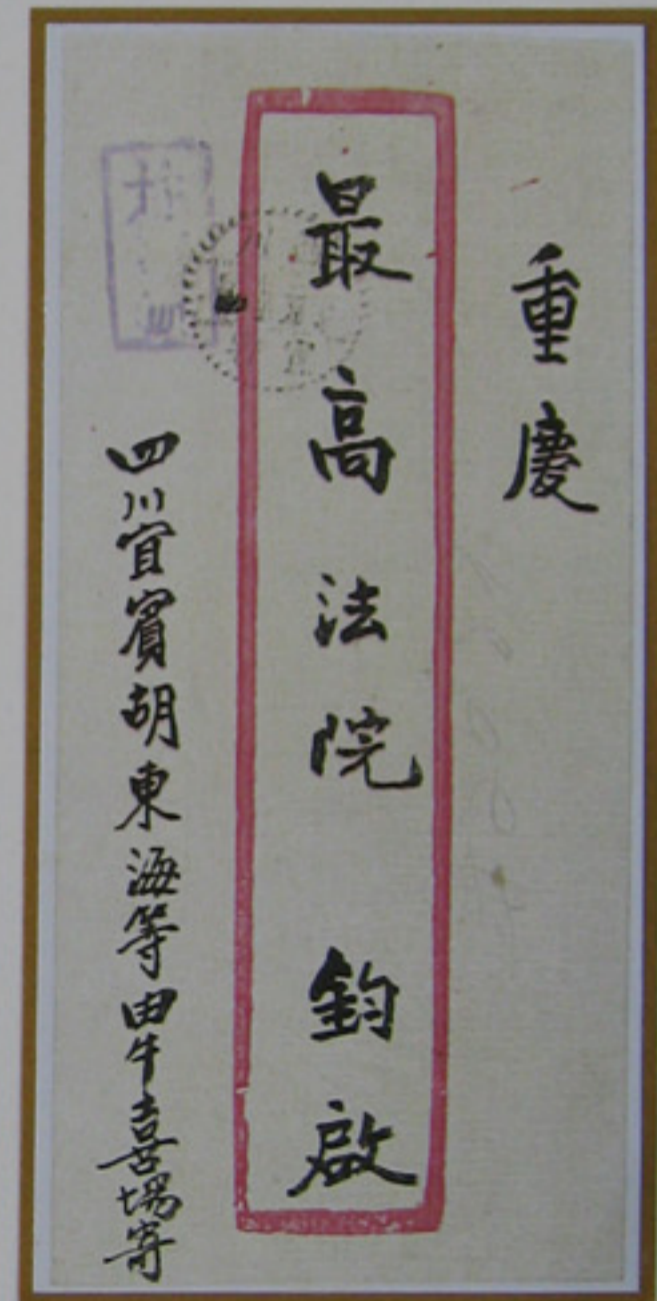 重慶
最高法院 鈞啟
四川宜賓胡東海等由牛喜場寄